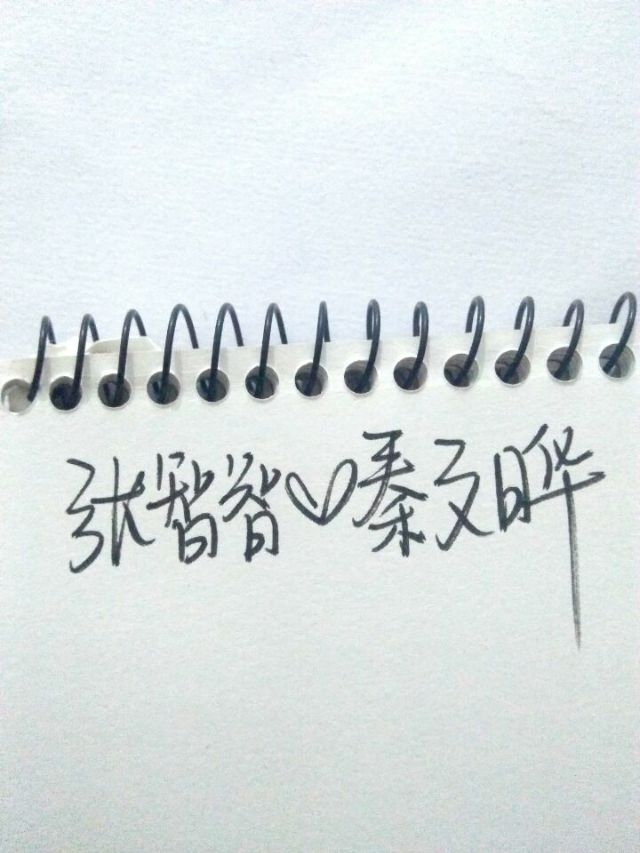 张智智♡秦文晔